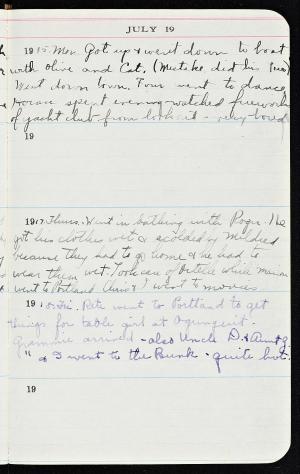 JULY 19
1915. Mon. Got up & went down to boat
with Olive and Cat. (Mistake did his Tues)
Went down town. Four went to dance
spent evening watched fireworks
of yacht club from lookout - very bored
19
1917. Thurs. Went in bathing with Roger. He
got his clothes wet & scolded by Mildred
because they had to go home & he had to
wear them wet. Took care of while
went to Portland. & I went to movies
19 Fri. Pete went to Portland to get
things for table girl at Ogunquit.
Grammie arrived - also Uncle D. & Aunt G.
" & I went to the Bunk. quite hot.
19